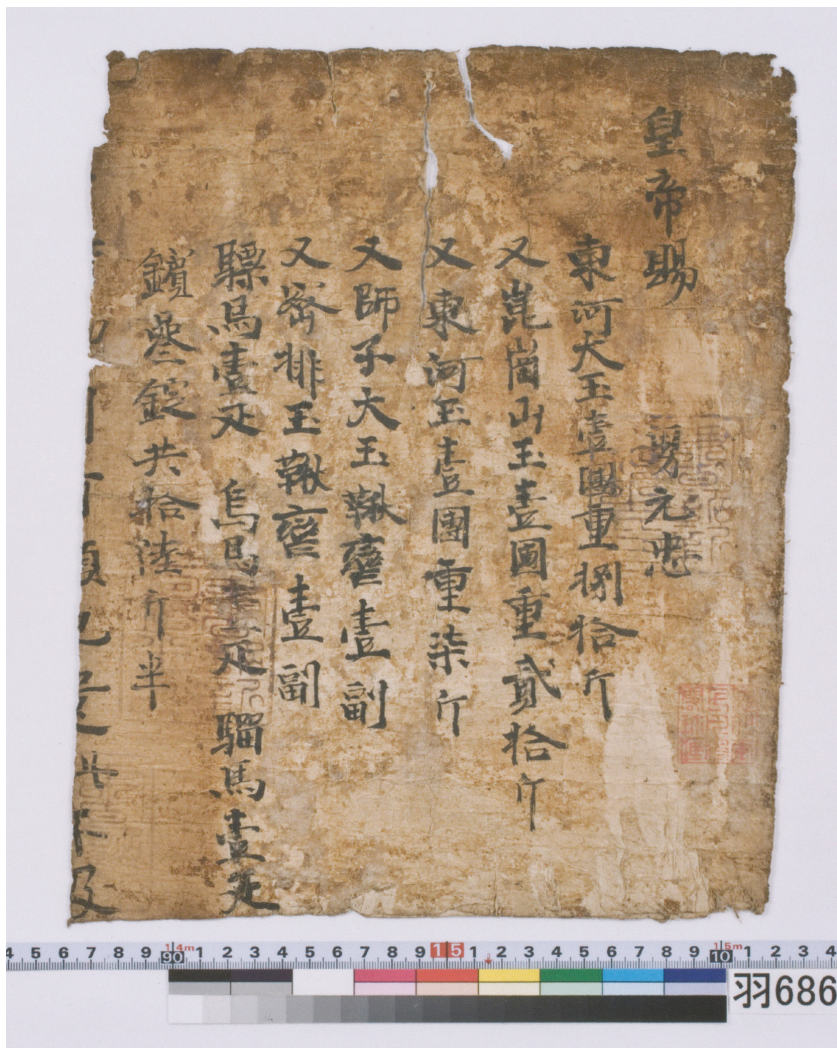 皇帝賜　舅元忠
東河大玉壹團重捌拾斤
又崑崗山玉壹團重貳拾斤
又東河玉壹團重柒斤
又師子大玉鞦轡壹副
又密排玉鞦轡壹副
驃馬壹疋　烏馬壹疋　騧馬壹疋
鑌叄錠共拾陸斤半
羽686